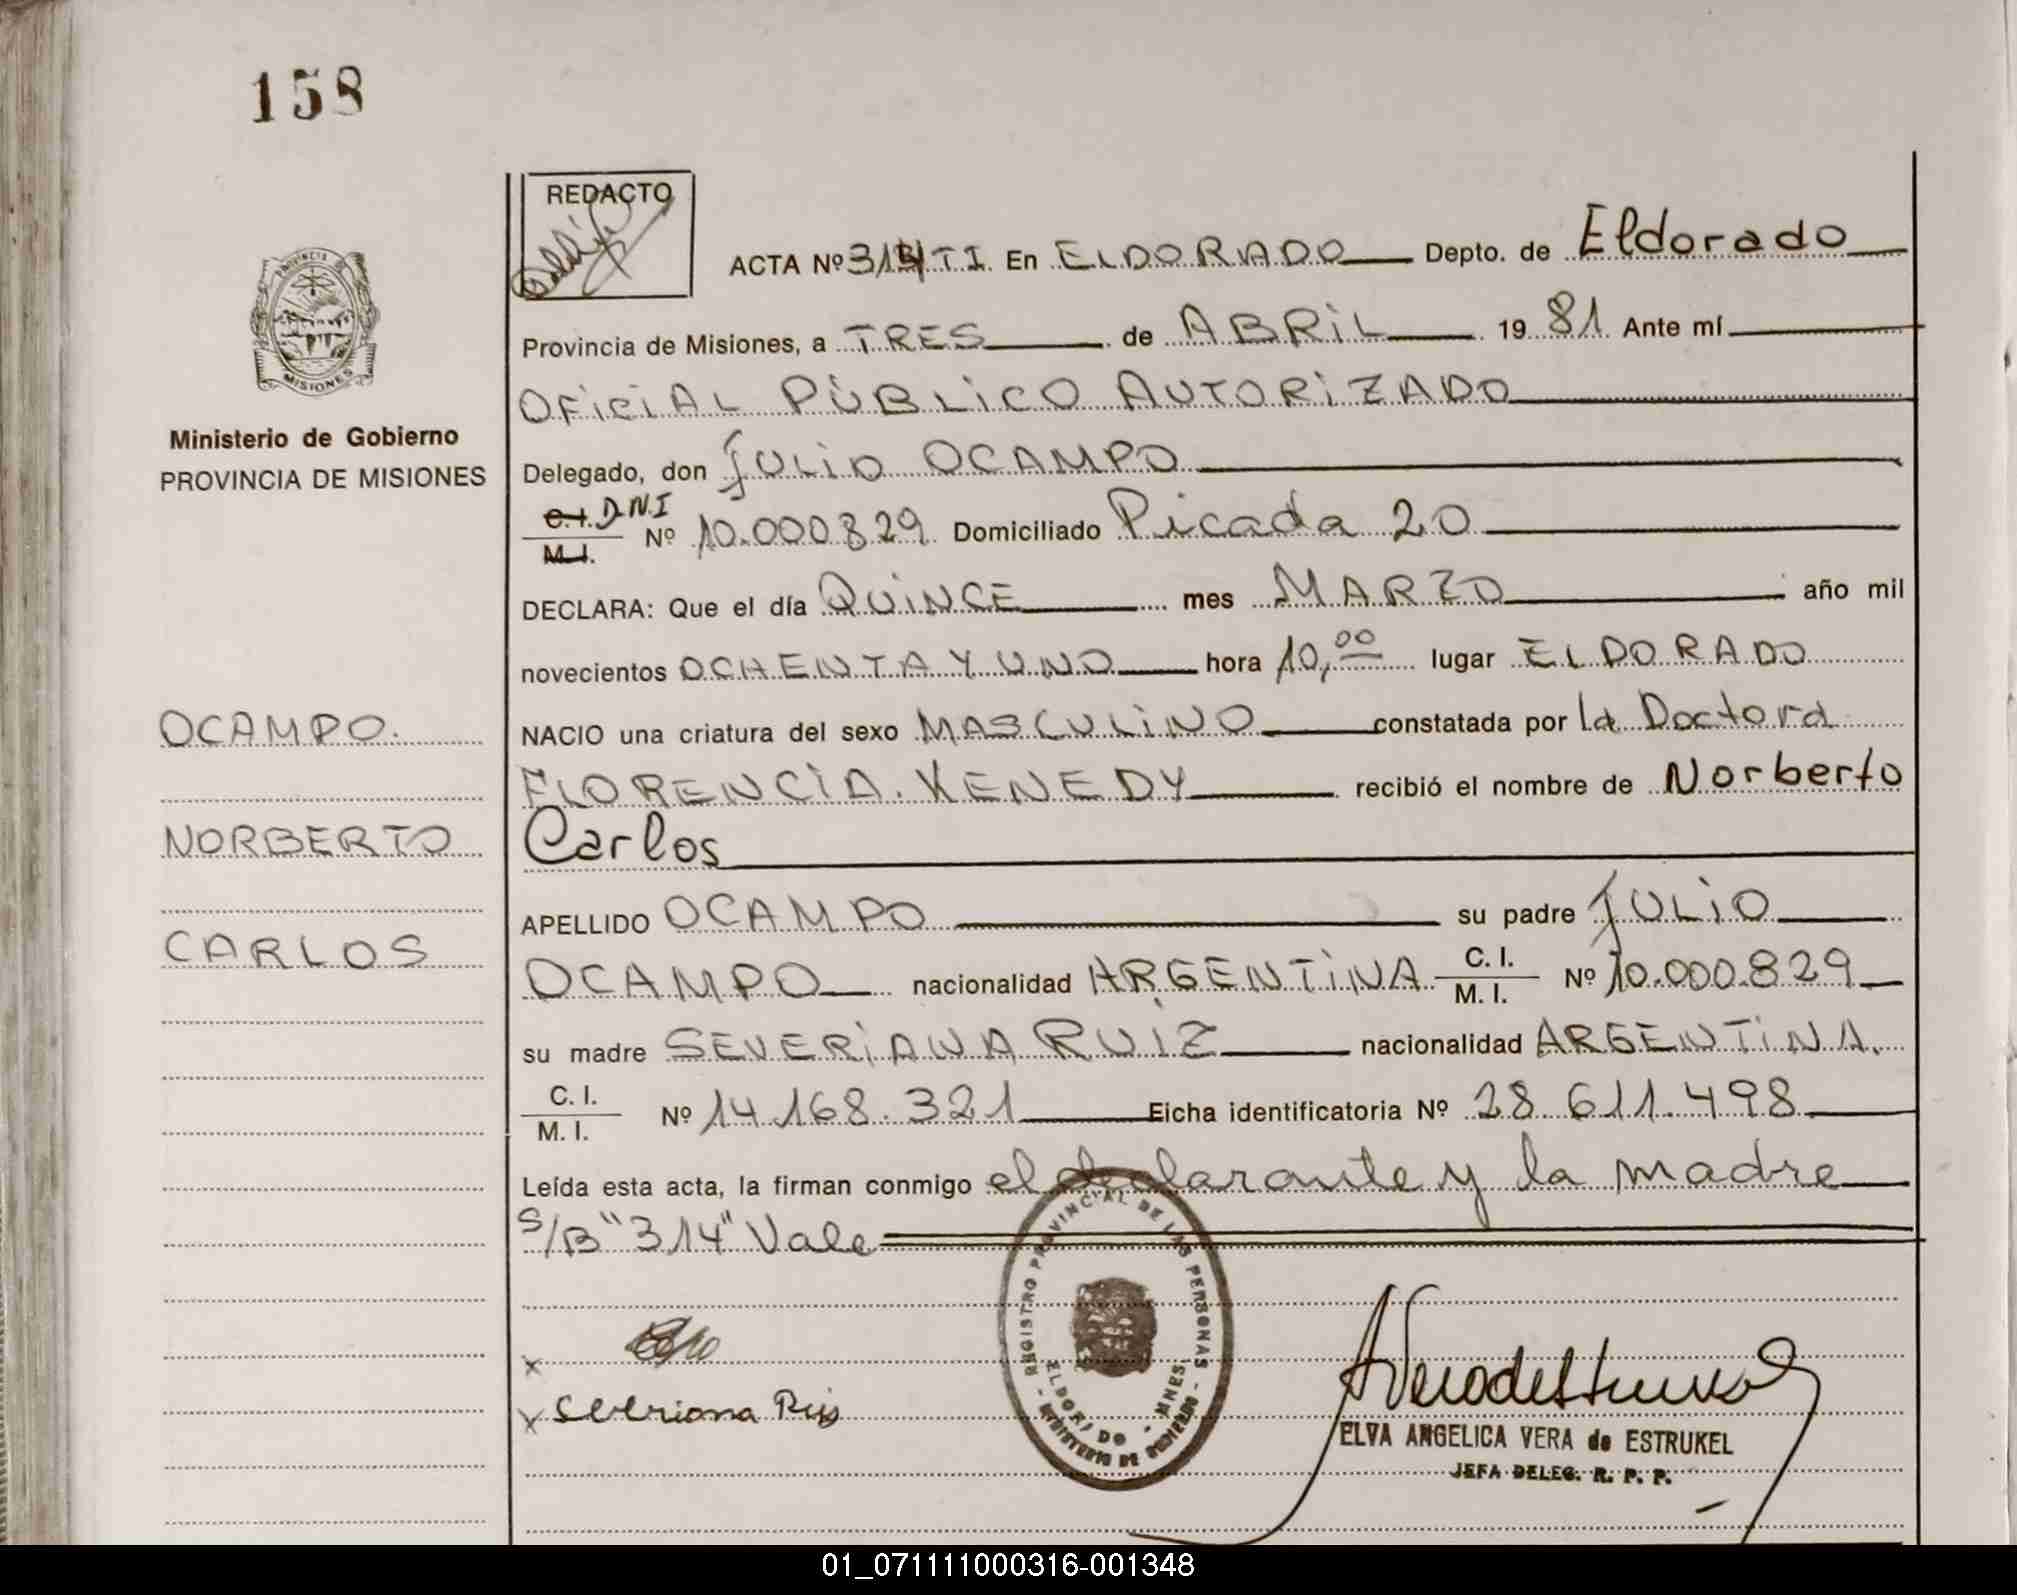 158
REDACTO
ACTA Nº 314/TI En ELDORADO Depto. de Eldorado
Provincia de Misiones, a TRES de ABRIL 1981 Ante mí
OFICIAL PÚBLICO AUTORIZADO
Ministerio de Gobierno
PROVINCIA DE MISIONES
Delegado, don JULIO OCAMPO
C.I. D.N.I
M.I. Nº 10.000.829 Domiciliado Picada 20
DECLARA: Que el día QUINCE mes MARZO año mil
novecientos OCHENTA Y UNO hora 10,00 lugar ELDORADO
OCAMPO.
NACIO una criatura del sexo MASCULINO constatada por la Doctora
FLORENCIA KENEDY recibió el nombre de Norberto
NORBERTO
Carlos
APELLIDO OCAMPO su padre JULIO
CARLOS
OCAMPO nacionalidad ARGENTINA C. I. M. I. Nº 10.000.829
su madre SEVERIANA RUIZ nacionalidad ARGENTINA.
C. I. M. I. Nº 14.168.321 Ficha identificatoria Nº 28.611.498
Leída esta acta, la firman conmigo el declarante y la madre
S/B "314" Vale
PROVINCIA
MISIONES
REGISTRO PROVINCIAL DE LAS PERSONAS
ELDORADO - MNES
MINISTERIO DE GOBIERNO
x
x Severiana
ELVA ANGELICA VERA de ESTRUKEL
JEFA DELEG. R. P. P.
01_071111000316-001348